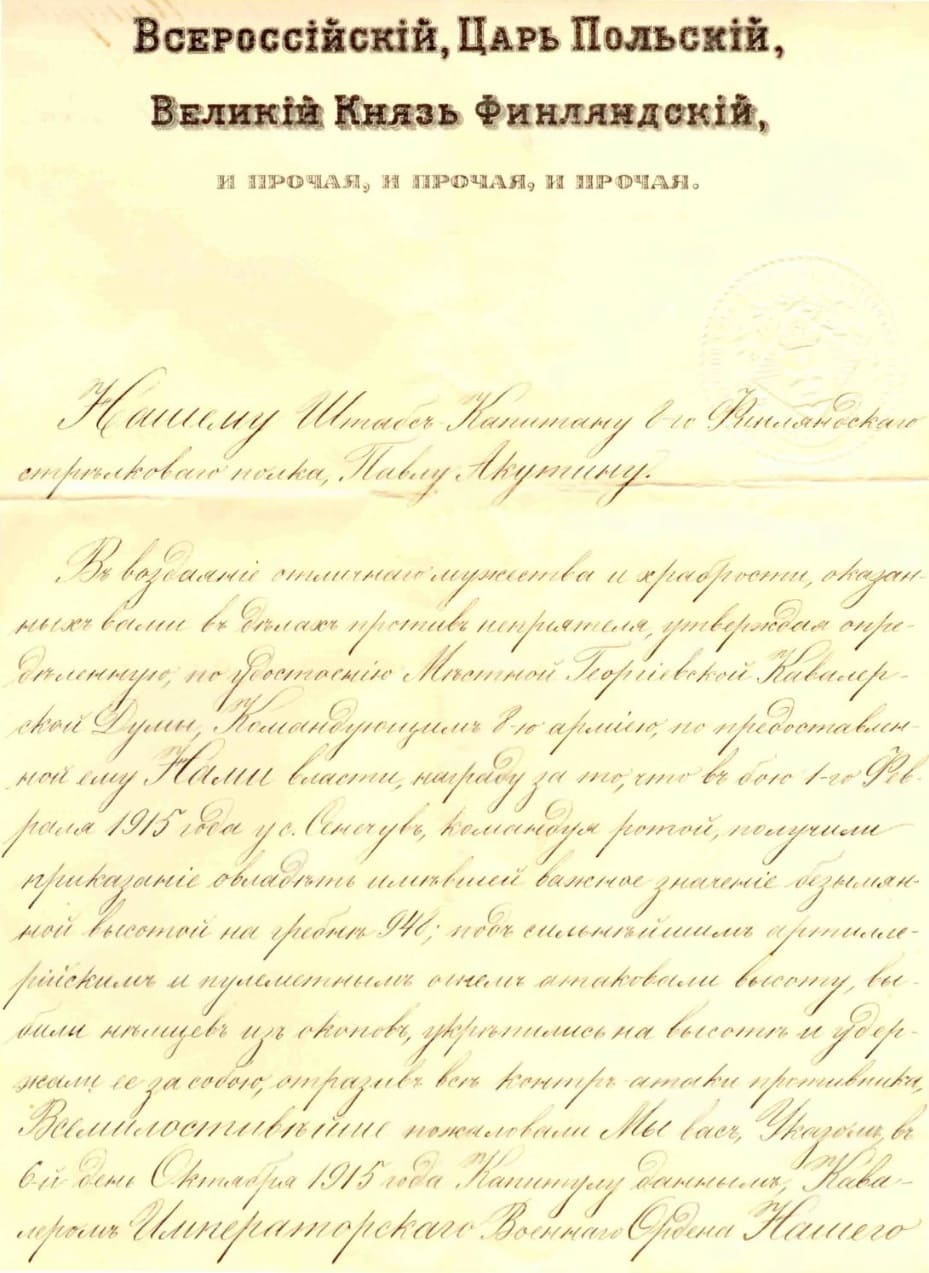 Всероссійскій, Царь Польскій,
Великій Князь Финляндскій,
и прочая, и прочая, и прочая.
Нашему Штабсъ-Капитану 8-го Финляндскаго
стрѣлковаго полка, Павлу Акутину.
Въ воздаяніе отличнаго мужества и храбрости, оказан-
ныхъ вами въ дѣлахъ противъ непріятеля, утверждая опре-
дѣленную, по удостоенію Мѣстной Георгіевской Кавалер-
ской Думы, Командующимъ 8-ю арміею, по предоставлен-
ной ему Нами власти, награду за то, что въ бою 1-го Фев-
раля 1915 года у с. Сенечувъ, командуя ротой, получили
приказаніе овладѣть имѣвшей важное значеніе безымян-
ной высотой на гребнѣ 948; подъ сильнѣйшимъ артилле-
рійскимъ и пулеметнымъ огнемъ атаковали высоту, вы-
били нѣмцевъ изъ окоповъ, укрѣпились на высотѣ и удер-
жали ее за собою, отразивъ всѣ контръ-атаки противника,
Всемилостивѣйше пожаловали Мы васъ, Указомъ, въ
6-й день Октября 1915 года Капитулу даннымъ, Кава-
леромъ Императорскаго Военнаго Ордена Нашего